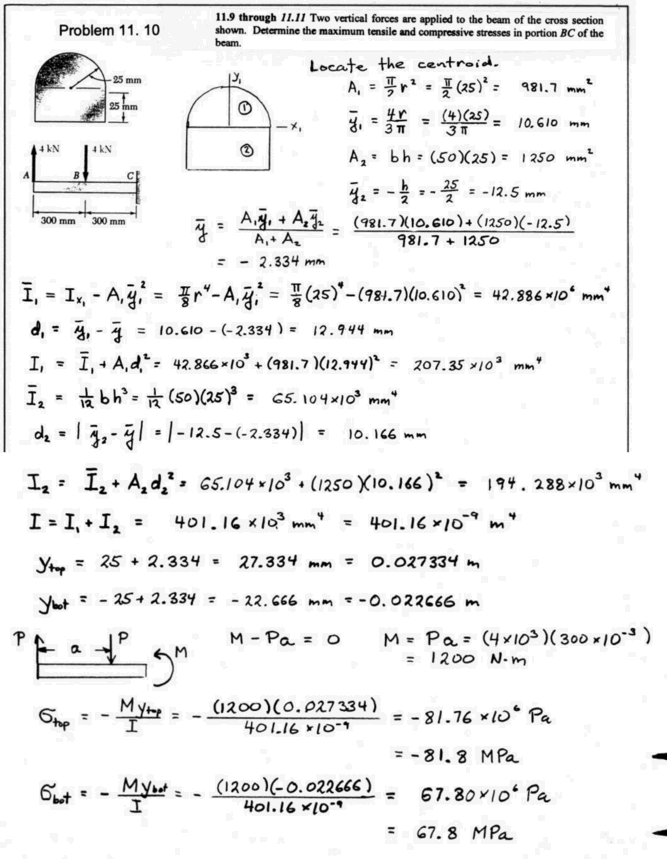 Problem 11. 10
11.9 through 11.11 Two vertical forces are applied to the beam of the cross section
shown. Determine the maximum tensile and compressive stresses in portion BC of the
beam.
25 mm
25 mm
4 kN 4 kN
A B C
300 mm 300 mm
y₁
①
x₁
②
Locate the centroid.
A₁ = π/2 r² = π/2 (25)² = 981.7 mm²
ȳ₁ = 4r/3π = (4)(25)/3π = 10.610 mm
A₂ = bh = (50)(25) = 1250 mm²
ȳ₂ = - h/2 = - 25/2 = -12.5 mm
ȳ = A₁ȳ₁ + A₂ȳ₂ / A₁ + A₂ = (981.7)(10.610) + (1250)(-12.5) / 981.7 + 1250
= - 2.334 mm
Ī₁ = Iₓ₁ - A₁ȳ₁² = π/8 r⁴ - A₁ȳ₁² = π/8 (25)⁴ - (981.7)(10.610)² = 42.886 × 10⁶ mm⁴
d₁ = ȳ₁ - ȳ = 10.610 - (-2.334) = 12.944 mm
I₁ = Ī₁ + A₁d₁² = 42.866 × 10³ + (981.7)(12.944)² = 207.35 × 10³ mm⁴
Ī₂ = 1/12 bh³ = 1/12 (50)(25)³ = 65.104 × 10³ mm⁴
d₂ = | ȳ₂ - ȳ | = |-12.5 - (-2.334)| = 10.166 mm
I₂ = Ī₂ + A₂d₂² = 65.104 × 10³ + (1250)(10.166)² = 194.288 × 10³ mm⁴
I = I₁ + I₂ = 401.16 × 10³ mm⁴ = 401.16 × 10⁻⁹ m⁴
y_top = 25 + 2.334 = 27.334 mm = 0.027334 m
y_bot = - 25 + 2.334 = - 22.666 mm = -0.022666 m
P a P M
M - Pa = 0 M = Pa = (4×10³)(300×10⁻³)
= 1200 N·m
σ_top = - My_top/I = - (1200)(0.027334) / 401.16 × 10⁻⁹ = -81.76 × 10⁶ Pa
= -81.8 MPa
σ_bot = - My_bot/I = - (1200)(-0.022666) / 401.16 × 10⁻⁹ = 67.80 × 10⁶ Pa
= 67.8 MPa